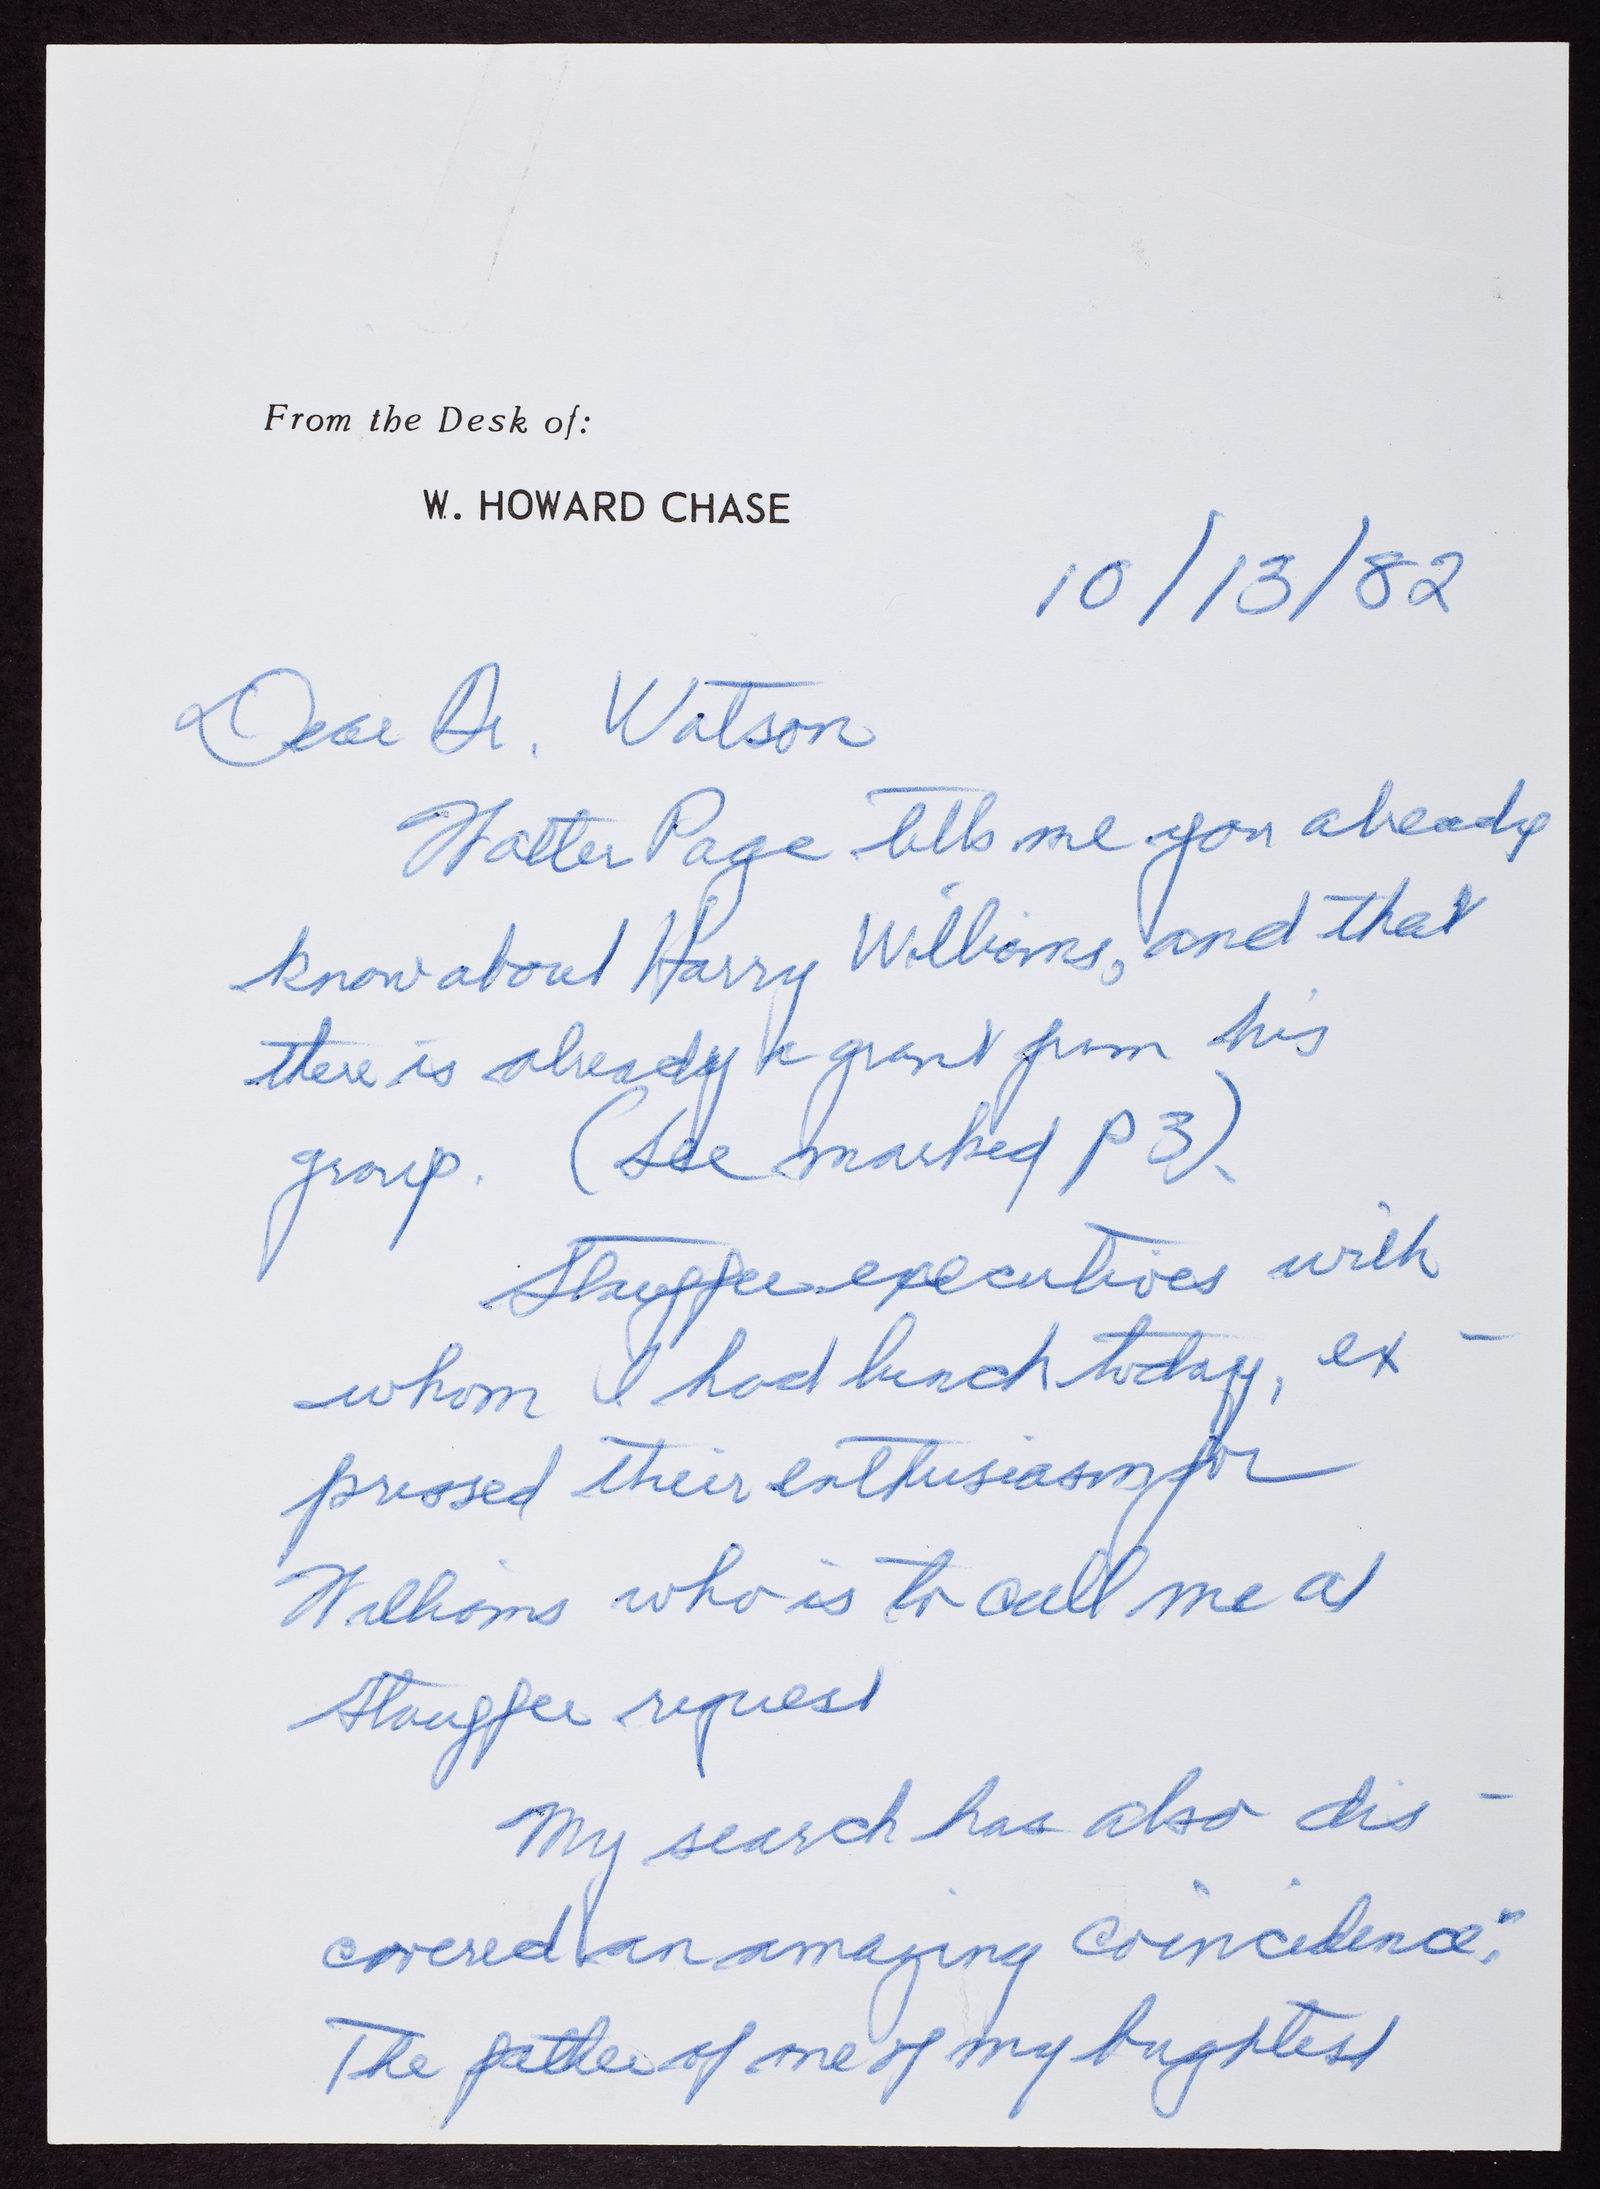 From the Desk of:
W. HOWARD CHASE
10/13/82
Dear Dr. Watson
Walter Page tells me you already
know about Harry Williams, and that
there is already a grant from his
group. (See marked P 3).
Stauffer executives with
whom I had lunch today, ex-
pressed their enthusiasm for
Williams who is to call me at
Stauffer request
My search has also dis-
covered an amazing coincidence:
The father of one of my brightest